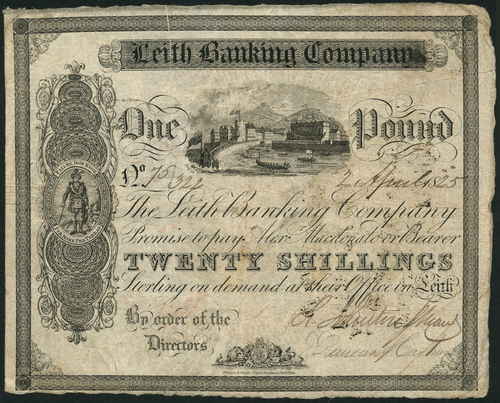 Leith Banking Company
One Pound
No
2 April 1825
The Leith Banking Company
Promise to pay Alexr. Macdonald or Bearer
TWENTY SHILLINGS
Sterling on demand at their Office in Leith
By order of the
Directors